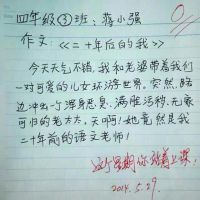 四年级③班：蒋小强
作文：《二十年后的我》
今天天气不错，我和老婆带着我们
一对可爱的儿女环游世界。突然，路
边冲出一个浑身恶臭、满脸污秽、无家
可归的老太太，天啊！她竟然是我
二十年前的语文老师！
0
这个星期你站着上课。
2014.5.29.